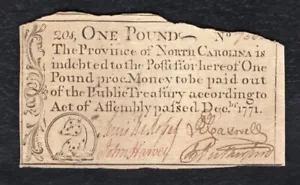 20s, ONE POUND No
The Province of NORTH CAROLINA is
indebted to the Possessor hereof One
Pound proc. Money to be paid out
of the Public Treasury according to
Act of Assembly passed Decbr. 1771.
Lewis DeRosset RCaswell
John Harvey JRutherfurd